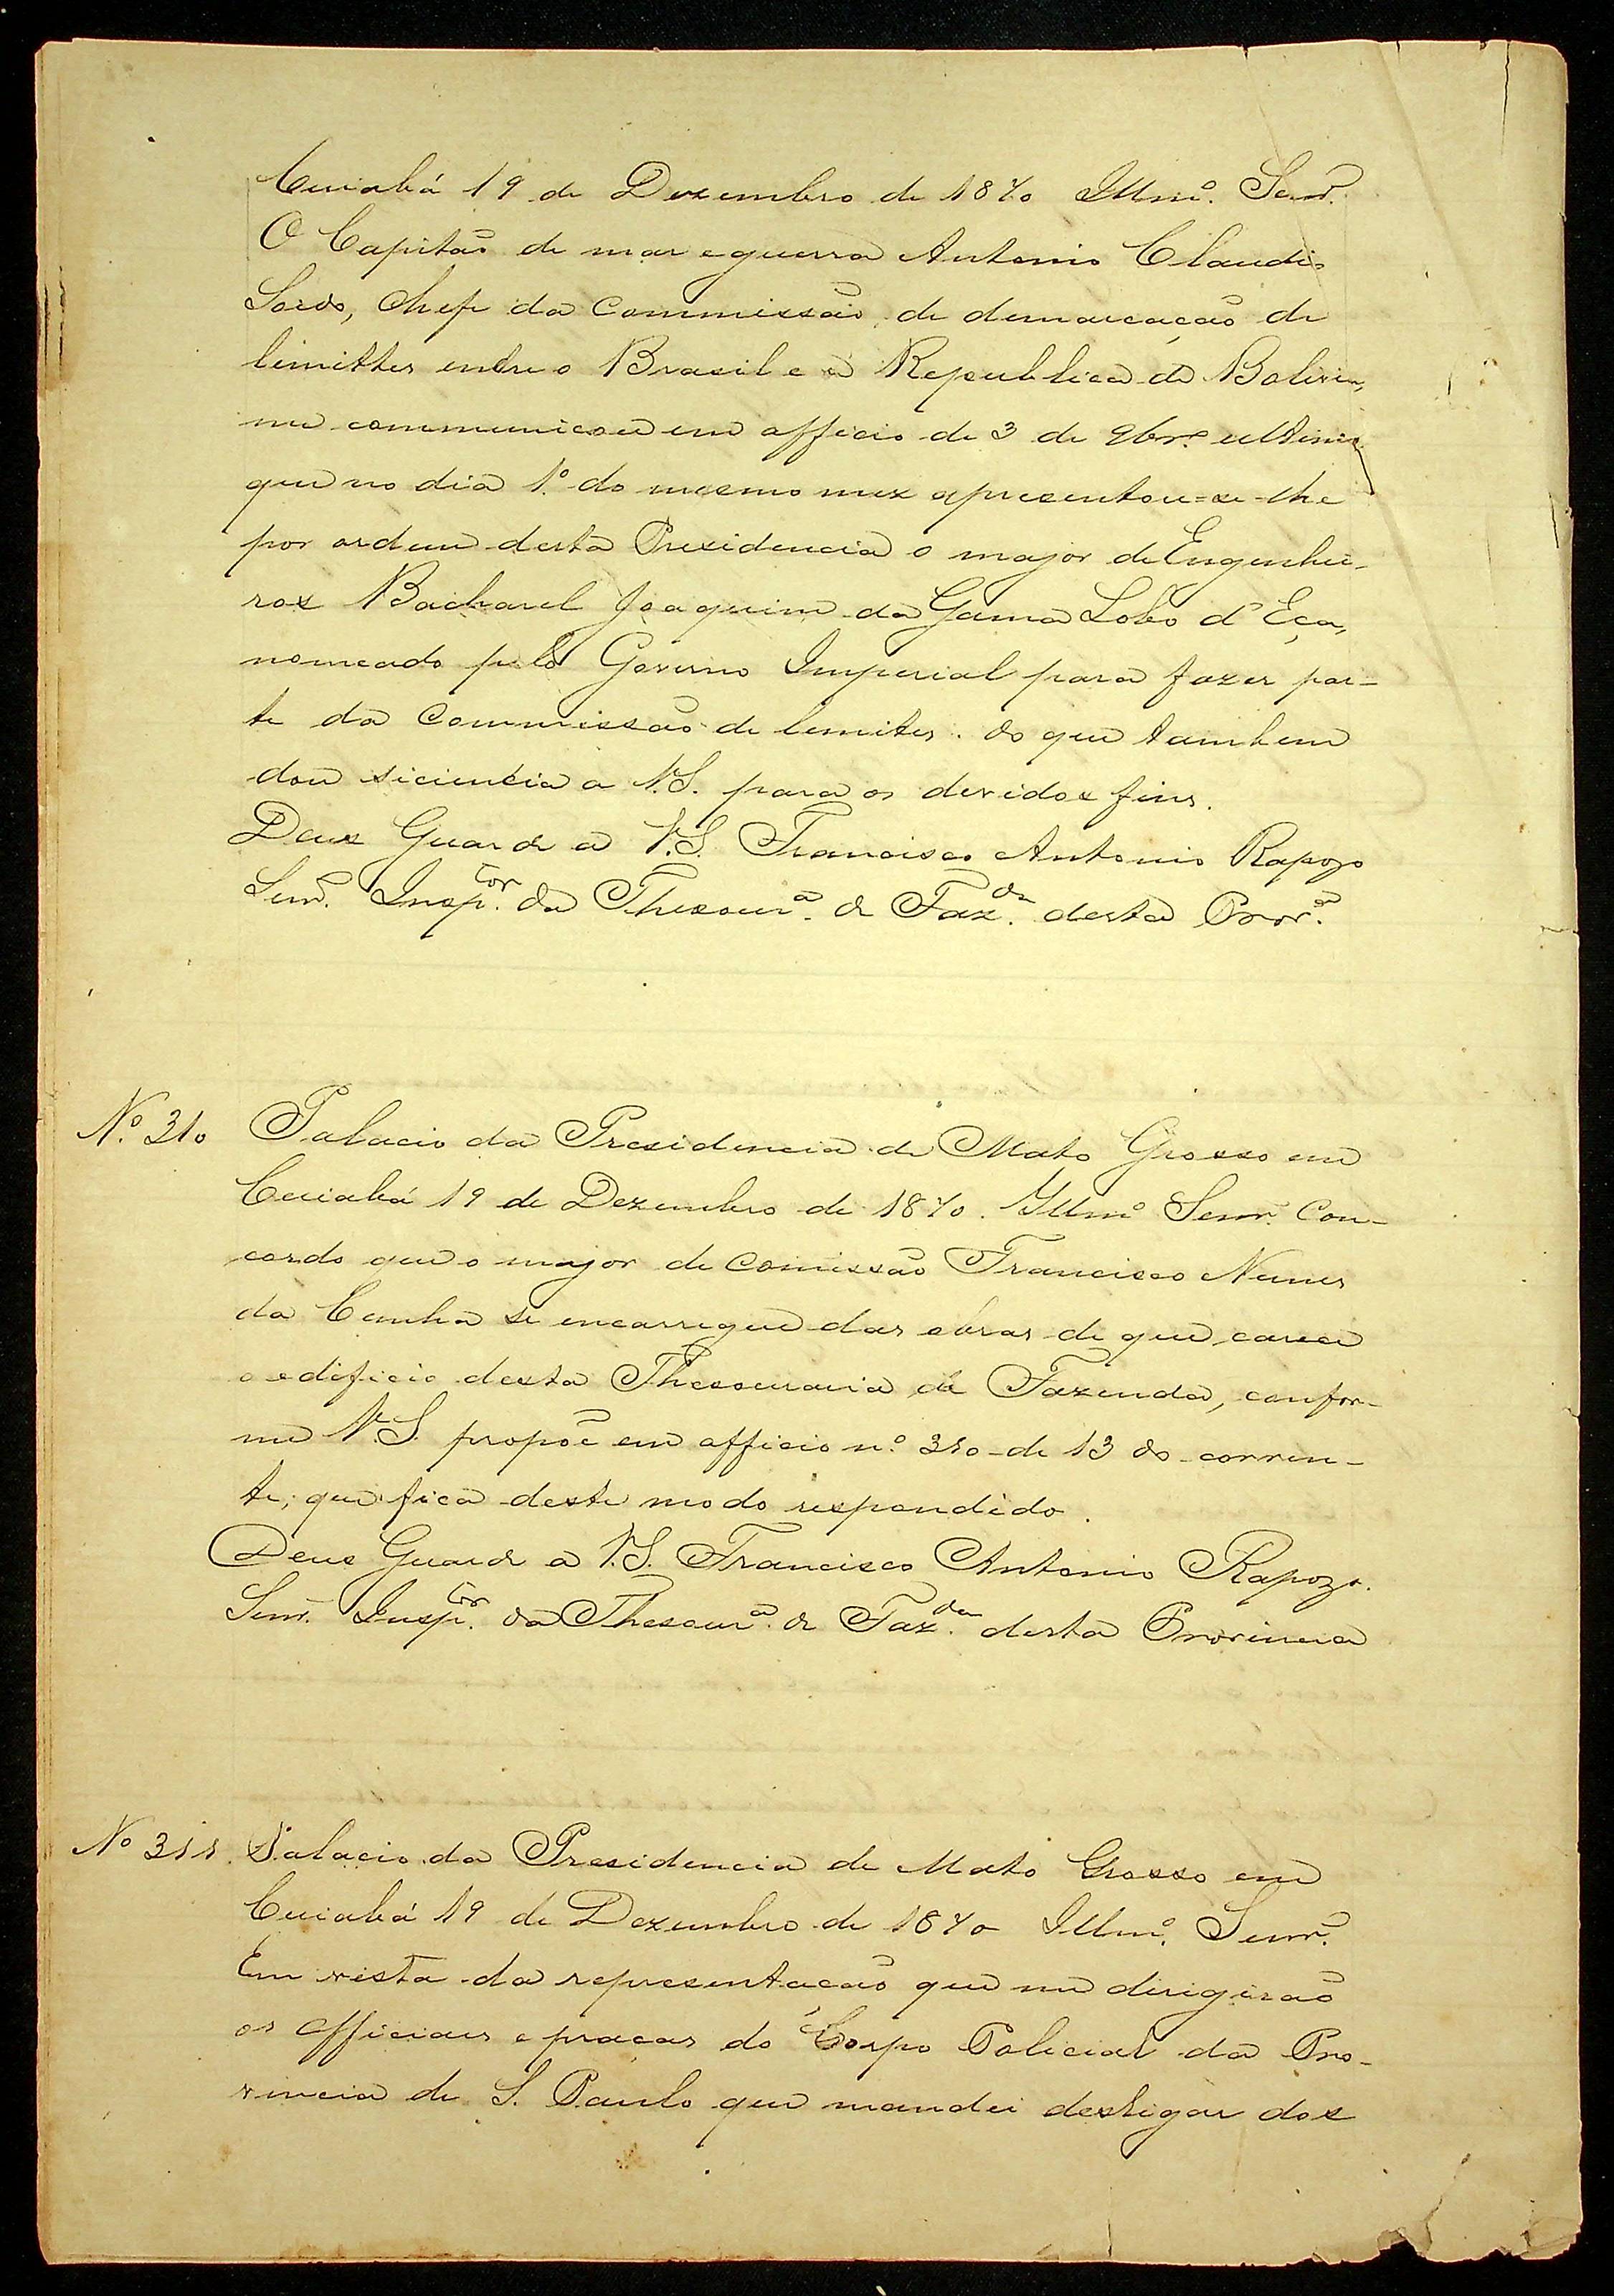 Cuiabá 19 de Dezembro de 1870 Illmº. Senr.
O Capitão de mar e guerra Antonio Claudio
Soido, Chefe da Commissão de demarcação de
limittes entre o Brasil e a Republica da Bolivia,
me communicou em officio de 3 de 9brº ultimo
que no dia 1º. do mesmo mez apresentou=se-lhe
por ordem desta Presidencia o major de Engenhei-
ros Bacharel Joaquim da Gama Lobo d'Eça,
nomeado pelo Governo Imperial para fazer par-
te da Commissão de lemites. do que tambem
dou siciencia a V.S. para os devidos fins.
Deus Guarde a V.S. Francisco Antonio Rapozo
Senr. Insp.tor da Thesourª. de Faz.da desta Provª.
Nº. 310 Palacio da Presidencia de Mato Grosso em
Cuiabá 19 de Dezembro de 1870. Illmº Senr. Con-
cordo que o major de Comissão Francisco Nunes
da Cunha se encarregue das obras de que carece
o edificio desta Thesouraria de Fazenda, confor-
me V.S. propõe em officio nº. 310 de 13 do corren-
te; que fica deste modo respondido.
Deus Guarde a V.S. Francisco Antonio Rapozo.
Senr. Insp.tor da Thesourª. de Faz.da desta Provincia
Nº 311. Palacio da Presidencia de Mato Grosso em
Cuiabá 19 de Dezembro de 1870 Illmº. Senr.
Em vista da representação que me dirigirão
os officiaes e praças do Corpo Policial da Pro-
vincia de S. Paulo que mandei desligar dos